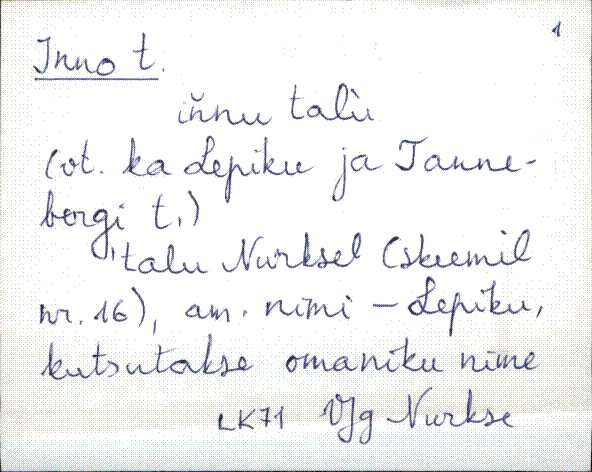 1
Inno t.
iňnu talù
(vt. ka Lepiku ja Tanne-
bergi t.)
'talu Nurksel (skeemil
nr. 16), am. nimi – Lepiku,
kutsutakse omaniku nime
LK71 VJg Nurkse